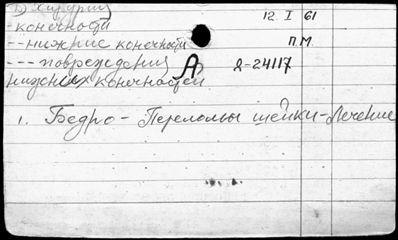 D) Хирургия 12. I 61
-конечности
--нижние конечности П.М.
---повреждения А Д-24117
нижних конечностей
1. Бедро - Переломы шейки - Лечение